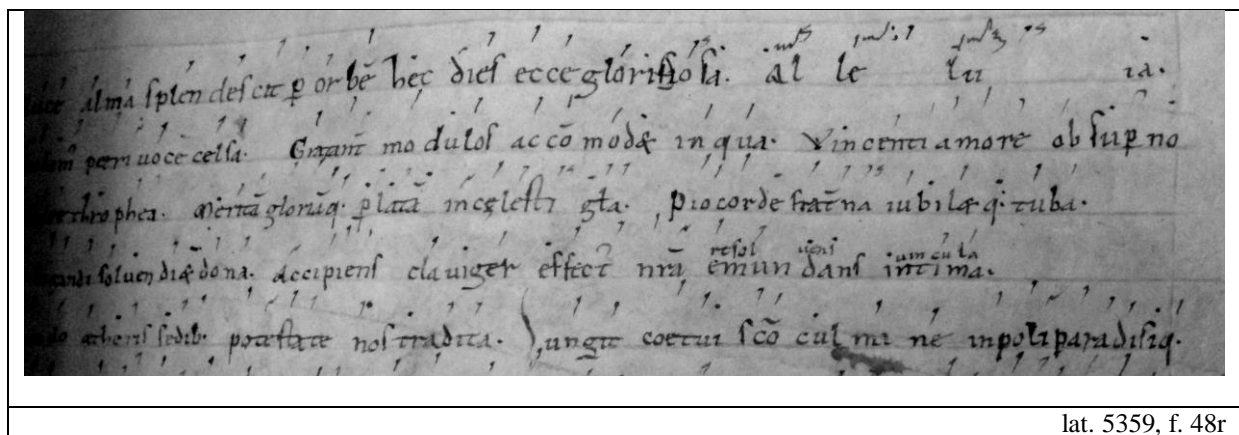 alma splendescit ꝑ orbē hec dies ecce gloriosa. al le lu ia.
pctri uocē celsa. Gratant̄ modulos accōmodę in qua. Vincenti amore ob suꝑno
throphea. Merita glorūq. ꝑlata in cęlesti gła. Pio corde frat̄na iubilæ q. tuba.
soluendi æ dona. Accipiens clauiger effect̄ nr̄a emundans intima.
resol uens uincula
ętheris sedib. potestate nos tradita. Jungit coetui sc̄o culmine in poli paradisiq.
lat. 5359, f. 48r